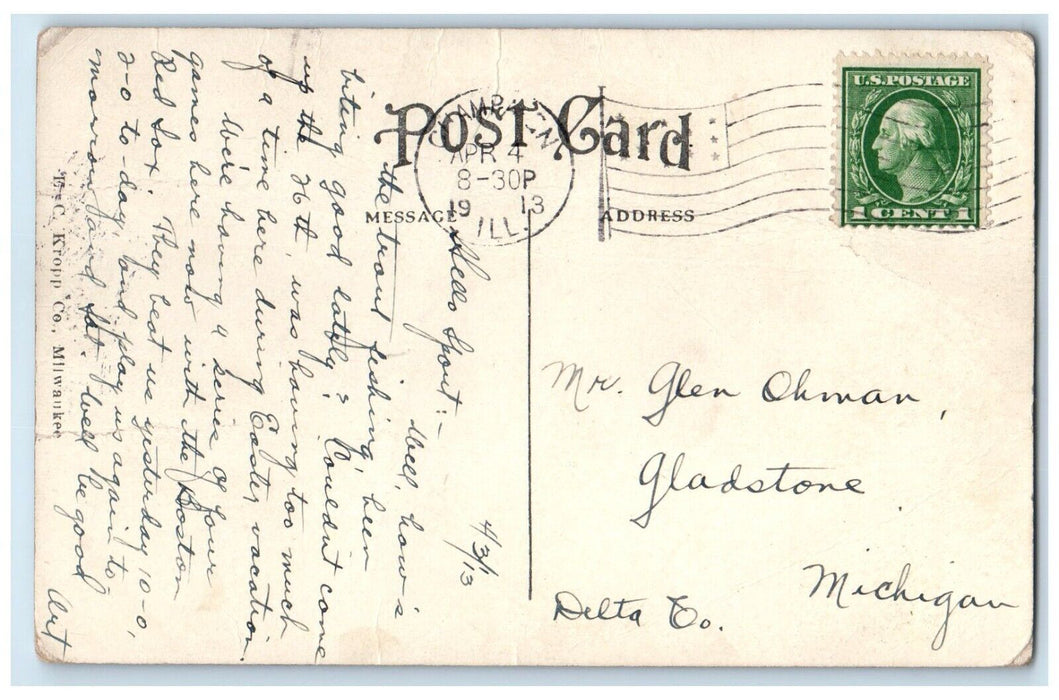 Post Card
MESSAGE
ADDRESS
APR 4
8-30P
1913
ILL.
U.S. POSTAGE
1 CENT 1
4/3/13
Hello Sport:-
Well, how's
the trout fishing, been
biting good lately? Couldn't come
up the 26th, was having too much
of a time here during Easter vacation.
We're having a series of four
games here now with the Boston
Red Sox. They beat us yesterday 10-0,
2-0 to-day, and play us again to
morrow and Sat. Well be good
Art
Mr. Glen Ohman,
Gladstone
Michigan
Delta Co.
E. C. Kropp Co., Milwaukee